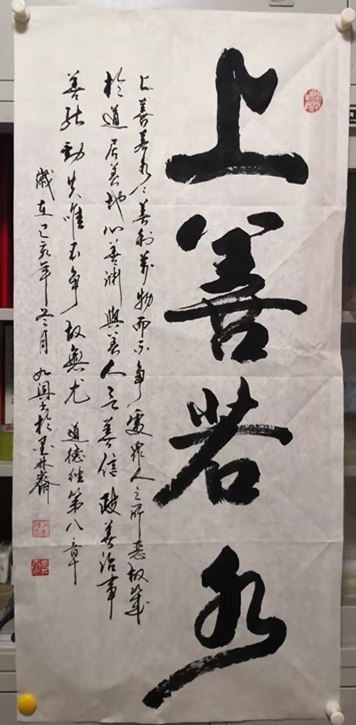 上善若水
上善若水々善利萬物而不争處眾人之所惡故幾
於道居善地心善淵與善人言善信政善治事
善能動夫唯不争故無尤 道德經第八章
歲在己亥年冬月 書於墨林齋